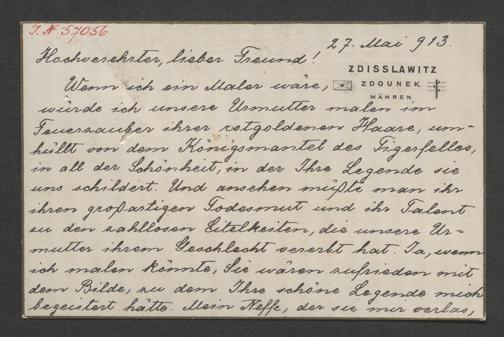 I. N. 57056
27. Mai 913.
Hochverehrter, lieber Freund!
ZDISSLAWITZ
ZDOUNEK
MÄHREN.
Wenn ich ein Maler wäre,
würde ich unsere Urmutter malen im
Feuerzauber ihrer rotgoldenen Haare, um-
hüllt von dem Königsmantel des Tigerfelles,
in all der Schönheit, in der Ihre Legende sie
uns schildert. Und ansehen müßte man ihr
ihren großartigen Todesmut und ihr Talent
zu den zahllosen Eitelkeiten, die unsere Ur-
mutter ihrem Geschlecht vererbt hat. Ja, wenn
ich malen könnte, Sie wären zufrieden mit
dem Bilde, zu dem Ihre schöne Legende mich
begeistert hätte. Mein Neffe, der sie mir vorlas,